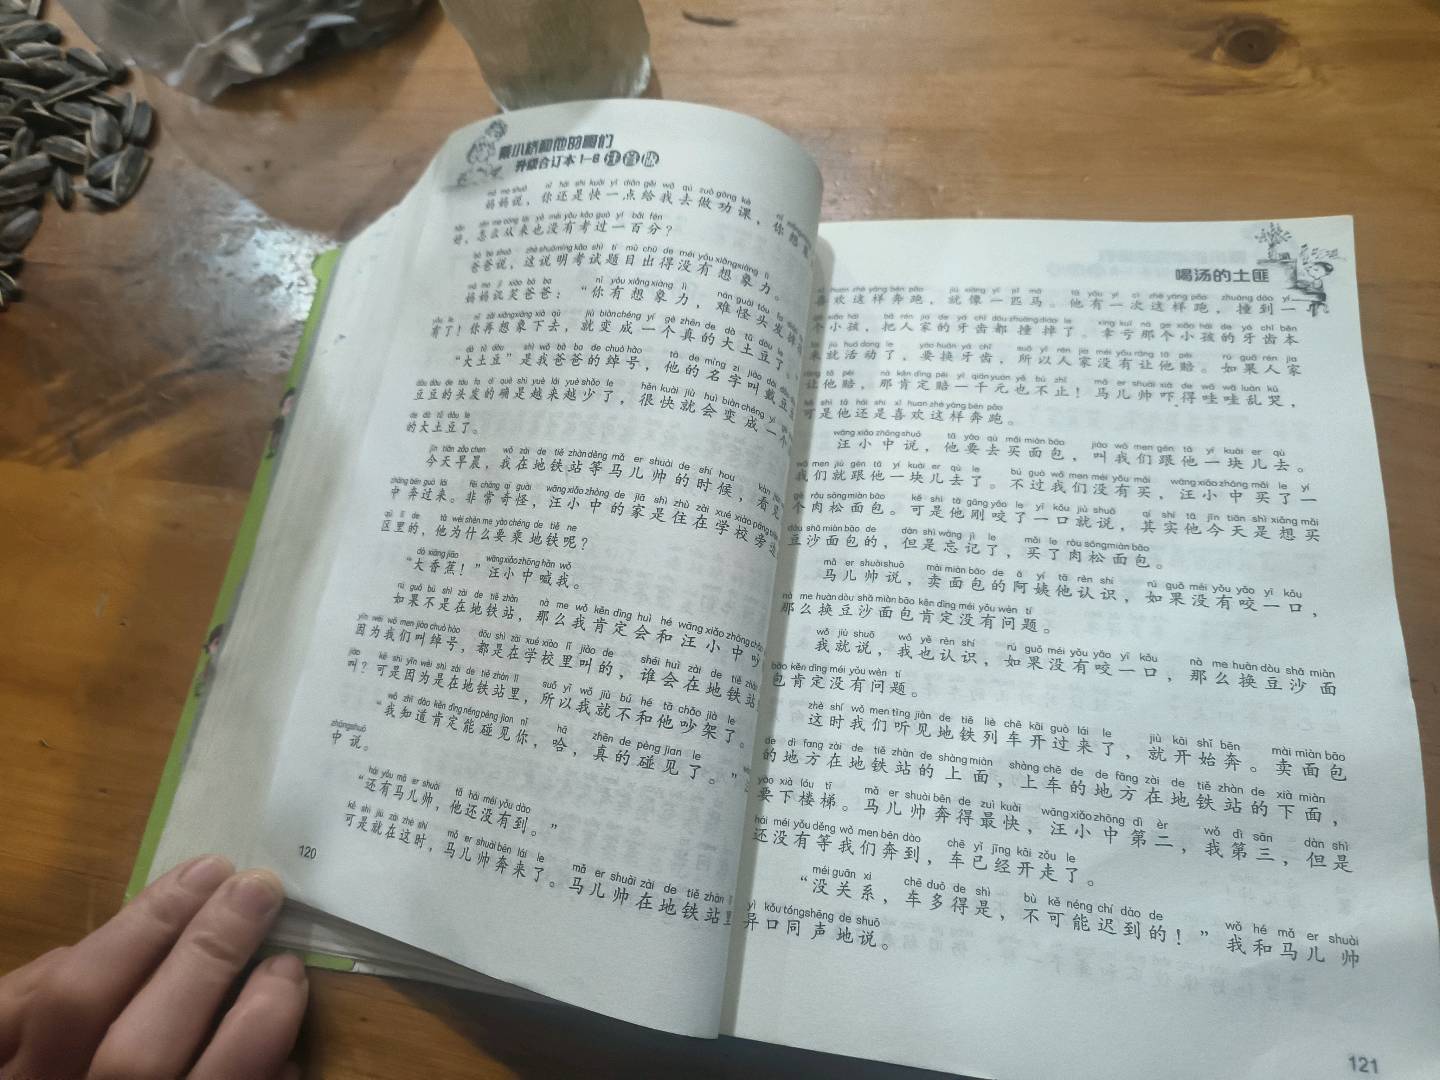 戴小桥和他的哥们
升级合订本1-6 注音版
妈妈说，你还是快一点给我去做功课，你想
好，怎么从来也没有考过一百分？
爸爸说，这说明考试题目出得没有想象力。
妈妈讥笑爸爸：“你有想象力，难怪头发掉
有了！你再想象下去，就变成一个真的大土豆了。
“大土豆”是我爸爸的绰号，他的名字叫戴豆豆
豆豆的头发的确是越来越少了，很快就会变成一个
的大土豆了。
今天早晨，我在地铁站等马儿帅的时候，看见
中奔过来。非常奇怪，汪小中的家是住在学校旁边
区里的，他为什么要乘地铁呢？
“大香蕉！”汪小中喊我。
如果不是在地铁站，那么我肯定会和汪小中吵
因为我们叫绰号，都是在学校里叫的，谁会在地铁站
叫？可是因为是在地铁站里，所以我就不和他吵架了。
“我知道肯定能碰见你，哈，真的碰见了。”
中说。
“还有马儿帅，他还没有到。”
可是就在这时，马儿帅奔来了。马儿帅在地铁站里
120
喝汤的土匪
喜欢这样奔跑，就像一匹马。他有一次这样跑，撞到一
个小孩，把人家的牙齿都撞掉了。幸亏那个小孩的牙齿本
来就活动了，要换牙齿，所以人家没有让他赔。如果人家
让他赔，那肯定赔一千元也不止！马儿帅吓得哇哇乱哭，
可是他还是喜欢这样奔跑。
汪小中说，他要去买面包，叫我们跟他一块儿去。
我们就跟他一块儿去了。不过我们没有买，汪小中买了一
个肉松面包。可是他刚咬了一口就说，其实他今天是想买
豆沙面包的，但是忘记了，买了肉松面包。
马儿帅说，卖面包的阿姨他认识，如果没有咬一口，
那么换豆沙面包肯定没有问题。
我就说，我也认识，如果没有咬一口，那么换豆沙面
包肯定没有问题。
这时我们听见地铁列车开过来了，就开始奔。卖面包
的地方在地铁站的上面，上车的地方在地铁站的下面，
要下楼梯。马儿帅奔得最快，汪小中第二，我第三，但是
还没有等我们奔到，车已经开走了。
“没关系，车多得是，不可能迟到的！”我和马儿帅
异口同声地说。
121